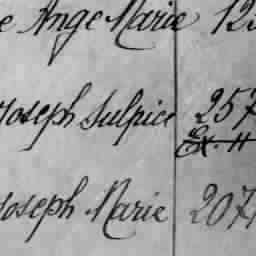 e Ange Marie 123
Joseph Sulpice 257
Ex. H
Joseph Marie 207